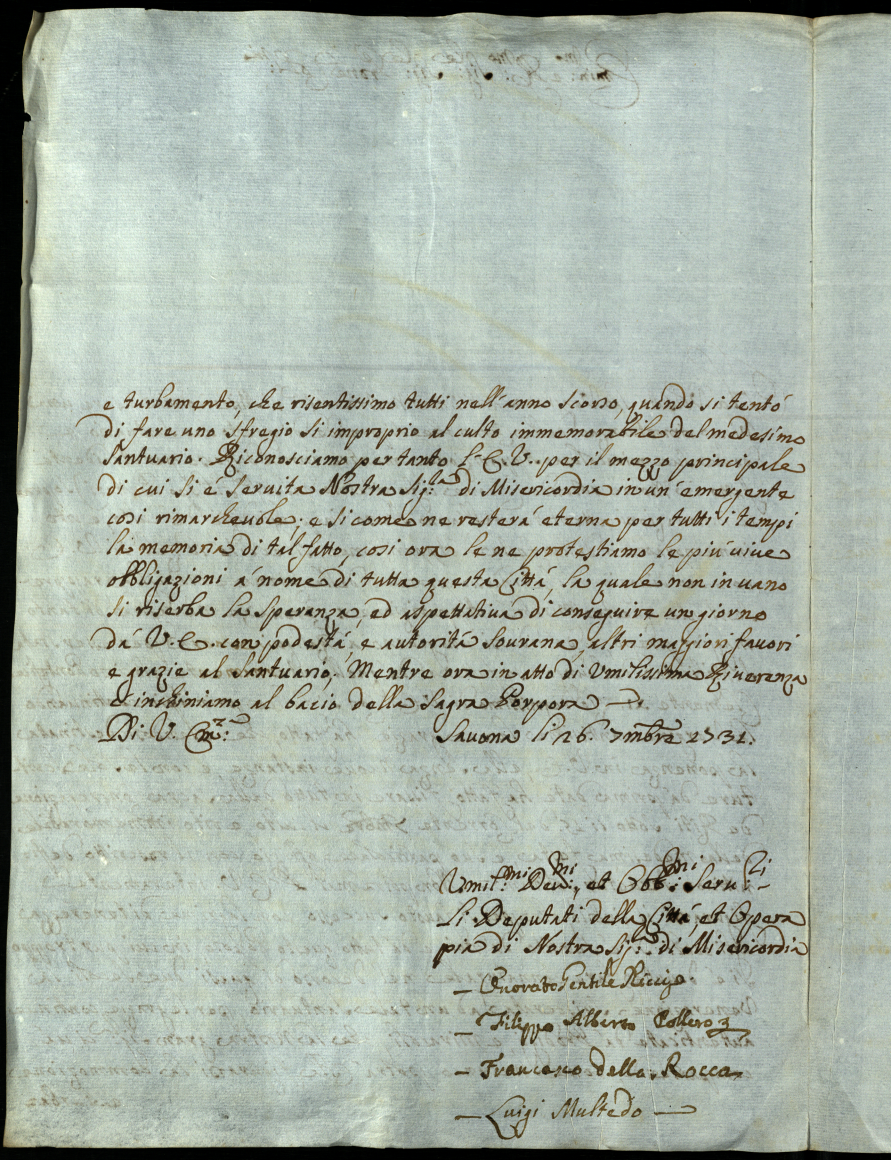 e turbamento, che risentissimo tutti nell'anno scorso, quando si tentó
di fare uno sfregio si improprio al culto immemorabile del medesimo
Santuario. Riconosciamo per tanto l'E. V. per il mezzo principale
di cui si é seruita Nostra Sig:ra di Misericordia in un'emergente
cosi rimarcheuole; e si come ne resterá eterna per tutti i tempi
la memoria di tal fatto, cosi ora le ne protestiamo le piú uiue
obbligazioni á nome di tutta questa Cittá, la quale non in uano
si riserba la speranza, ed aspettatiua di conseguire un giorno
dá V. E. con podestá, e autoritá sourana, altri maggiori fauori
e grazie al Santuario. Mentre ora in atto di Vmilissima Riuerenza
c'inchiniamo al bacio della Sagra Porpora
Di V. Em:za Sauona li 26. 7mbre 1731.
Vmil:mi Deu:mi, et Obb:mi Seru:ri
Li Deputati della Cittá, et Opera
pia di Nostra Sig:ra di Misericordia
Onorato Gentile Riccij
Filippo Alberto Pollero
Francesco della Rocca
Luigi Multedo